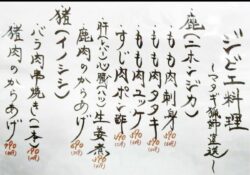 ジビエ料理
〜マタギ猟師直送〜
鹿(ニホンジカ)
・もも肉刺身 590
・もも肉タタキ 590
・もも肉ユッケ 590
・すじ肉ポン酢 490
・肝(レバー)・心臓(ハツ)生姜煮 590
・鹿肉のからあげ 590
猪(イノシシ)
・バラ肉串焼き(一本) 290
・猪肉のからあげ 690